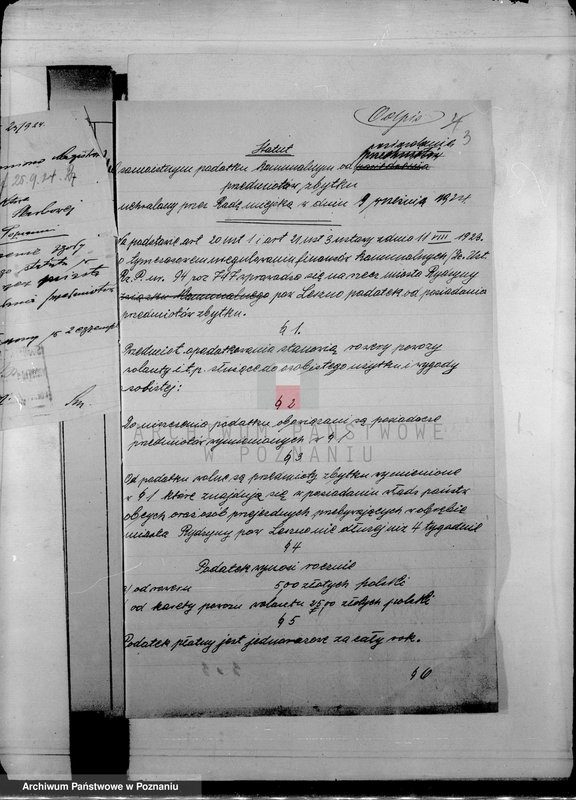 25/9.24
Odpis
3
Statut
o samoistnym podatku komunalnym od posiadania
przedmiotów zbytku
uchwalony przez Radę miejską w dniu 9 września 1924
Na podstawie art 20 ust 1 i art 21 ust 3 ustawy z dnia 11 VIII 1923.
o tymczasowem uregulowaniu finansów komunalnych, Dz. Ust.
Rz. P. nr. 94 poz 747 wprowadza się na rzecz miasta Rydzyny
związku komunalnego pow Leszno podatek od posiadania
przedmiotów zbytku.
§ 1.
Przedmiot opodatkowania stanowią rowery powozy
wolanty i t.p. służące do osobistego użytku i wygody
osobistej:
§ 2
Do uiszczenia podatku obowiązani są posiadacze
przedmiotów wymienionych w § 1
§ 3
Od podatku wolne są przedmioty zbytku wymienione
w § 1 które znajdują się w posiadaniu władz państw
obcych oraz osób przejezdnych przebywających w obrębie
miasta Rydzyny pow Leszno nie dłużej niż 4 tygodnie
§ 4
Podatek wynosi rocznie
a) od roweru 5,00 złotych polski
od karety powozu wolantu 25,00 złotych polski
§ 5
Podatek płatny jest jednorazowo za cały rok.
§ 6
ARCHIWUM PAŃSTWOWE
W POZNANIU
Archiwum Państwowe w Poznaniu